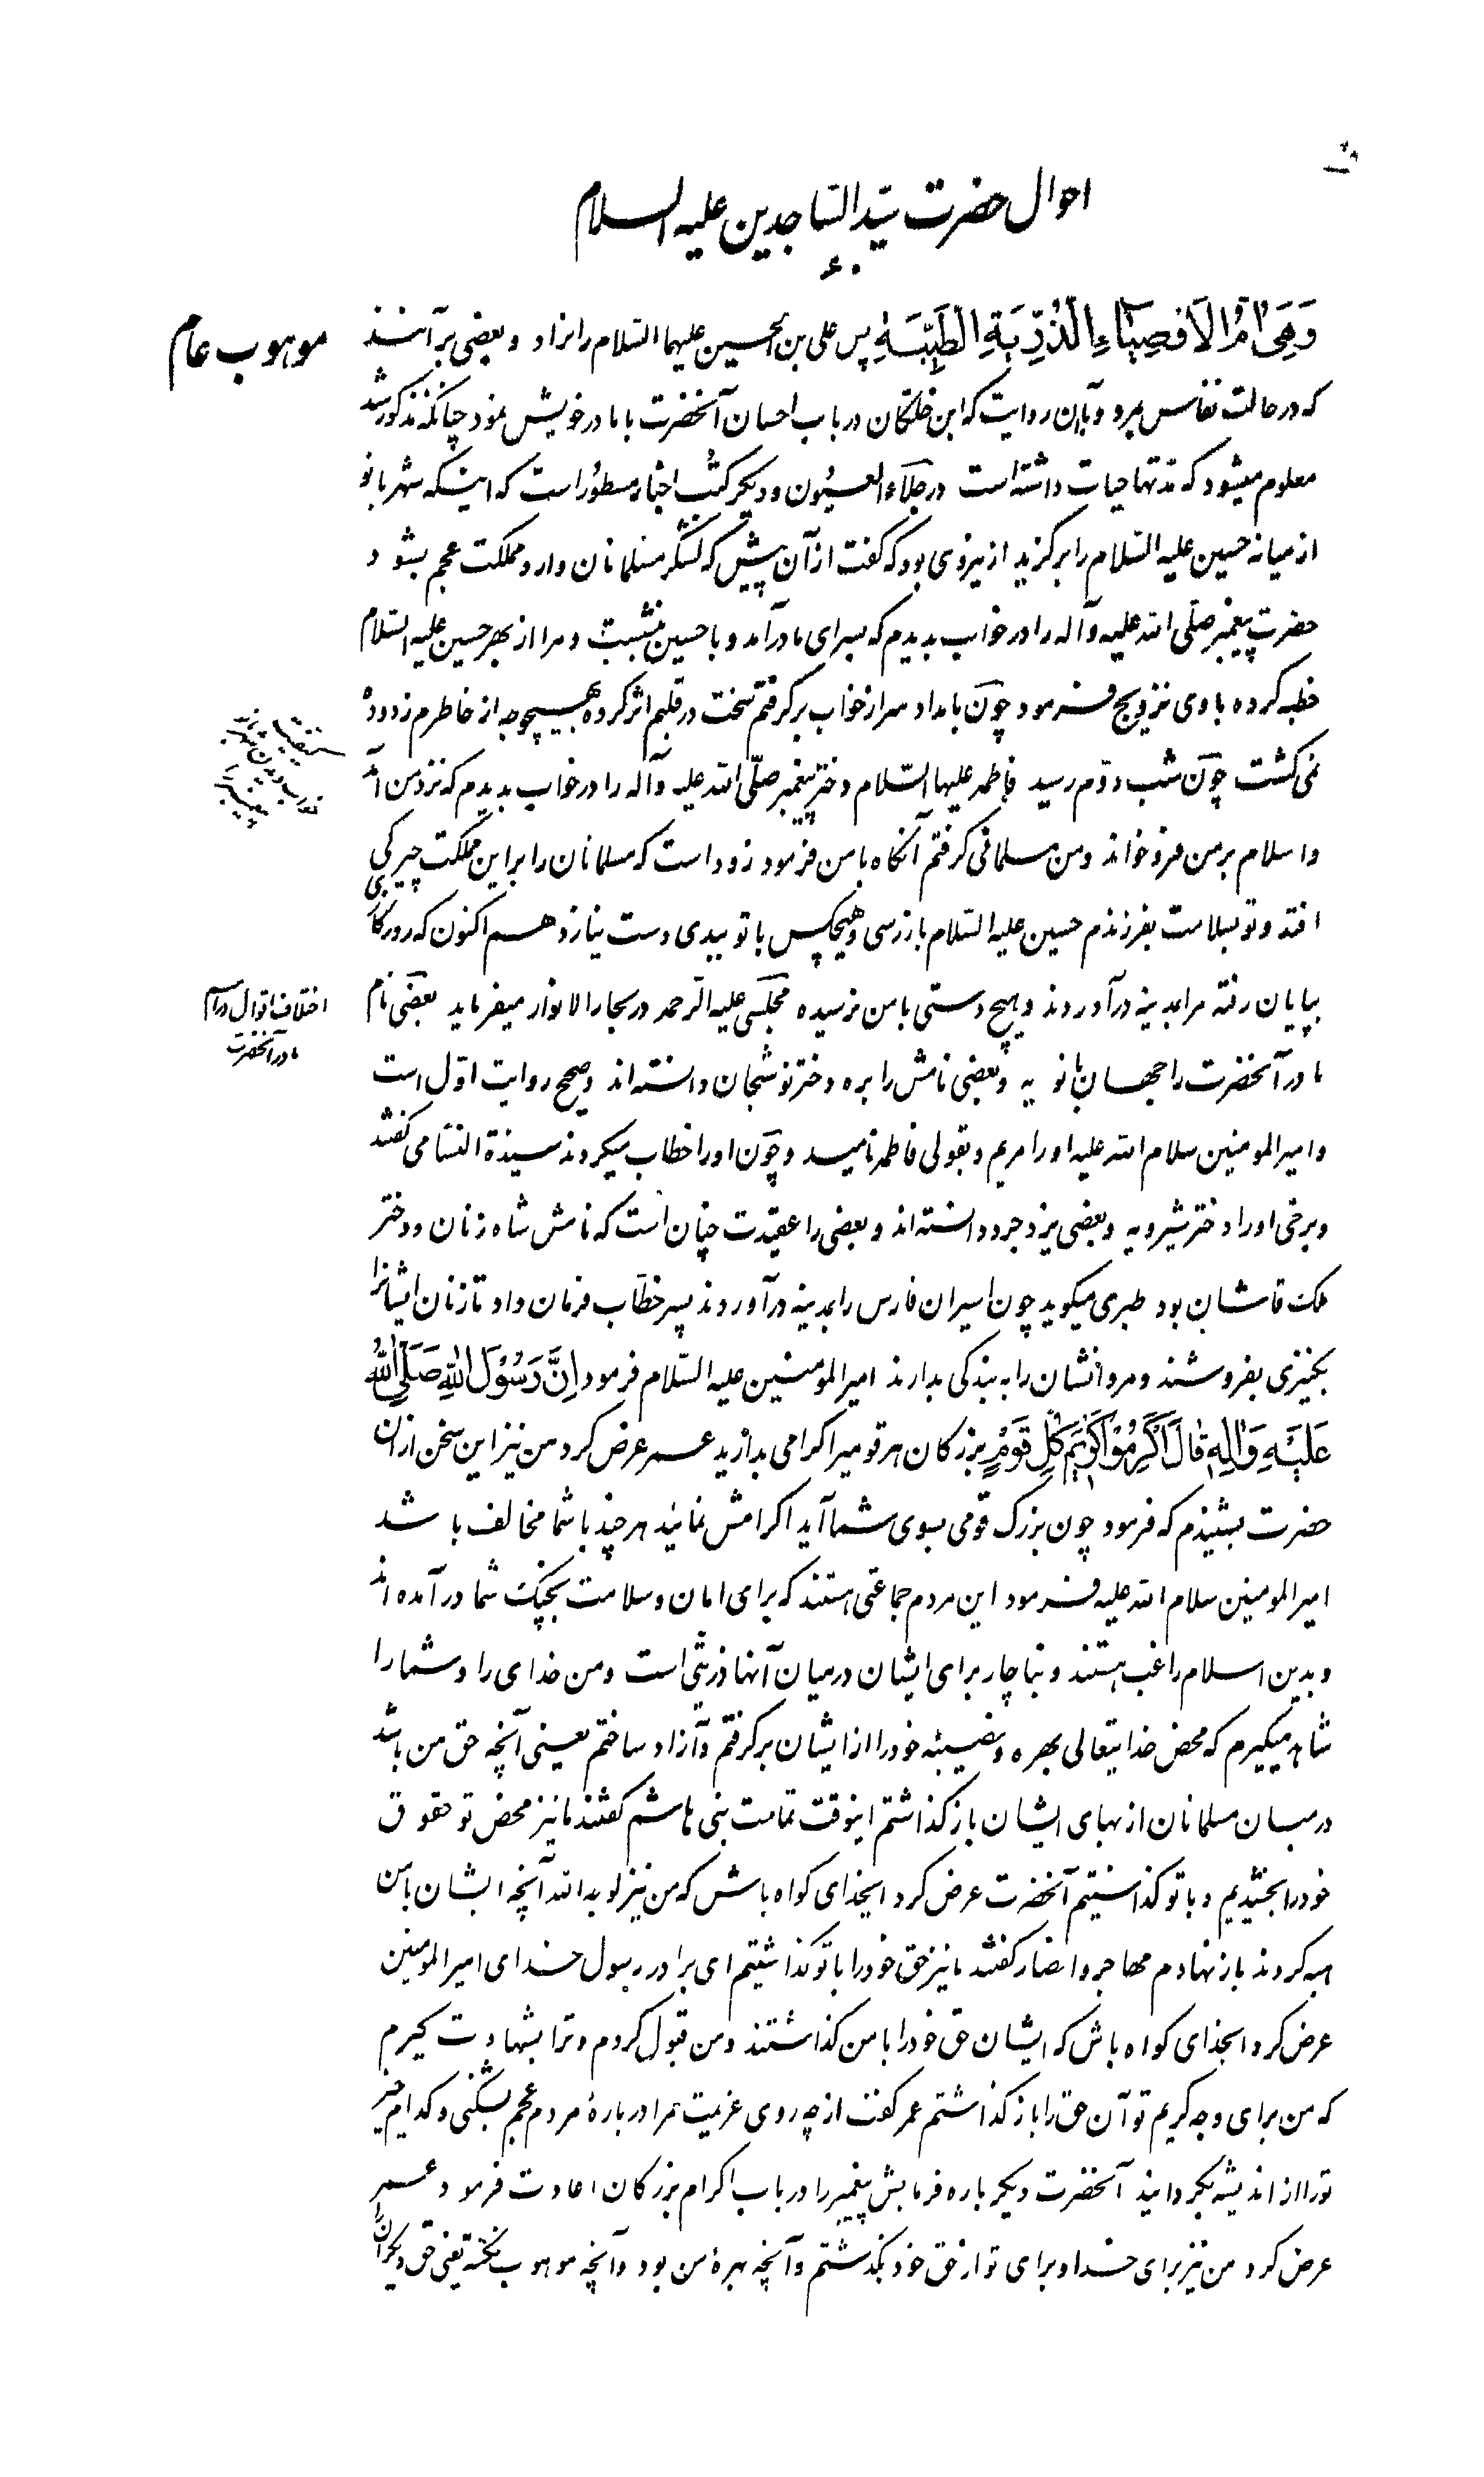 احوال حضرت سیّد السّاجدین علیه السلام
وَهِیَ اُمُّ الاَوصِیٰاءِ الذُّرِّیَةِ الطَّیِّبَةِ پس علی بن الحسین علیهما السّلام را بزاد و بعضی برآنند
موهوب عام
که در حالت نفاس بمرد و بآن روایت که ابن خلکان در باب احسان آنحضرت با مادر خویش نمود چنانکه مذکور شد
معلوم میشود که مدتها حیات داشته است در جلاء العیون و دیگر کتب اخبار مسطور است که اینکه شهربانو
از میانه حسین علیه السّلام را برگزید از نیروی بود که گفت از آن پیش که لشکر مسلمانان وارد مملکت عجم بشود
حضرت پیغمبر صلّی الله علیه و آله را در خواب بدیدم که بسرای ما درآمد و با حسین بنشست و مرا از بهر حسین علیه السّلام
خطبه کرده با وی تزویج فرمود چون بامداد سر از خواب برگرفتم سخت در قلبم اثر کرده بهیچوجه از خاطرم زدوده
نمی گشت چون شب دوّم رسید فاطمه علیها السّلام دختر پیغمبر صلّی الله علیه و آله را در خواب بدیدم که نزد من آمد
و اسلام بر من فرو خواند و من مسلمانی گرفتم آنگاه با من فرمود زود است که مسلمانان را بر این مملکت چیرگی
افتد و تو بسلامت بفرزندم حسین علیه السّلام باز رسی و هیچکس با تو ببدی دست نیازد هم اکنون که روزگاری
بپایان رفته مرا بمدینه درآوردند و هیچ دستی با من نرسیده مجلسی علیه الرّحمه در بحار الانوار میفرماید بعضی نام
اختلاف اقوال در نام
مادر آنحضرت
مادر آنحضرت را جهان بانویه و بعضی نامش را بره دختر نوشجان دانسته اند و صحیح روایت اوّل است
و امیر المومنین سلام الله علیه او را مریم و بقولی فاطمه نامید و چون او را خطاب میکردند سیّدة النسا می گفتند
و برخی او را دختر شیرویه و بعضی یزدجرد دانسته اند و بعضی را عقیدت چنان است که نامش شاه زنان و دختر
ملک قاشان بود طبری میگوید چون اسیران فارس را بمدینه درآوردند پسر خطّاب فرمان داد تا زنان ایشانرا
بکنیزی بفروشند و مردانشان را به بندگی بدارند امیر المومنین علیه السّلام فرمود اِنَّ رَسُوْلَ اللهِ صَلَّی اللهُ
عَلَیْهِ وَ اٰلِهٖ قٰالَ اَکْرِمُوْا کَرِیْمَ کُلِّ قَوْمٍ بزرگان هر قومیرا گرامی بدارید عمر عرض کرد من نیز این سخن از آن
حضرت بشنیدم که فرمود چون بزرگ قومی بسوی شما آید اکرامش نمائید هر چند با شما مخالف باشد
امیر المومنین سلام الله علیه فرمود این مردم جماعتی هستند که برای امان و سلامت بچنگ شما درآمده اند
و بدین اسلام راغب هستند و بناچار برای ایشان در میان آنها ذریّتی است و من خدای را و شما را
شاهد میگیرم که محض خدایتعالی بهره و نصیبه خود را از ایشان برگرفتم و آزاد ساختم یعنی آنچه حق من باشد
در میان مسلمانان از بهای ایشان باز گذاشتم اینوقت تمامت بنی هاشم گفتند ما نیز محض تو حقوق
خود را بخشیدیم و با تو گذاشتیم آنحضرت عرض کرد ایخدای گواه باش که من نیز لوجه الله آنچه ایشان با من
هبه کردند باز نهادم مهاجر و انصار گفتند ما نیز حق خود را با تو گذاشتیم ای برادر رسول خدای امیر المومنین
عرض کرد ایخدای گواه باش که ایشان حق خود را با من گذاشتند و من قبول کردم و ترا بشهادت گیرم
که من برای وجه کریم تو آن حق را باز گذاشتم عمر گفت از چه روی عزیمت مرا در بارهٔ مردم عجم بشکنی و کدام چیز
تو را از اندیشه بگردانید آنحضرت دیگر باره فرمایش پیغمبر را در باب اکرام بزرگان اعادت فرمود عمر
عرض کرد من نیز برای خدا و برای تو از حق خود بگذشتم و آنچه بهرهٔ من بود و آنچه موهوب نگشته یعنی حق دیگران را